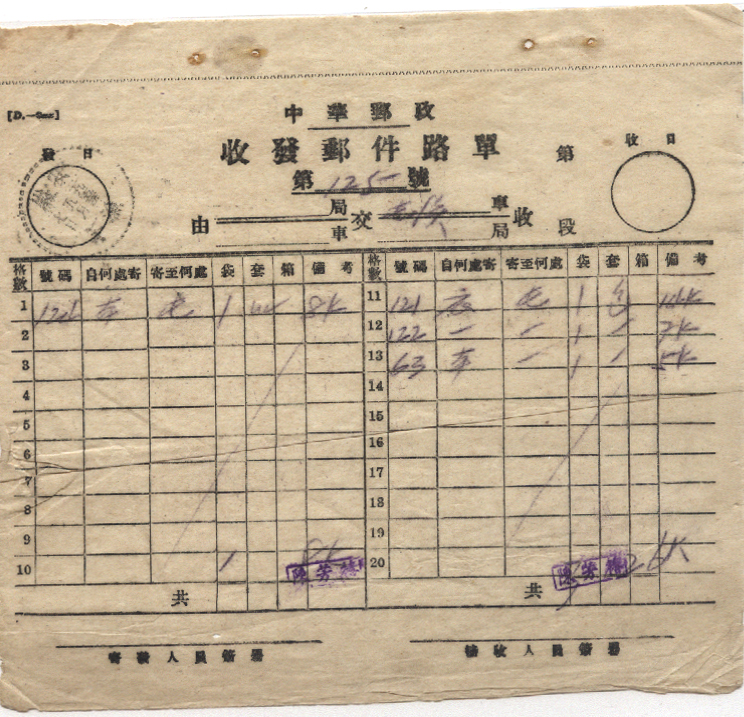 [D.—
中華郵政
發日 收發郵件路單 第 收日
第125號
由 局車 交 車局 收 段
格數 號碼 自何處寄 寄至何處 袋 套 箱 備考 格數 號碼 自何處寄 寄至何處 袋 套 箱 備考
1 本 1 8K 11 121 1 14K
2 12 122 一 一 1 7K
3 13 63 本 一 1 5K
4 14
5 15
6 16
7 17
8 18
9 19
10 1 8K 20 26K
陳芳 陳芳
共 共
寄發人員簽署 接收人員簽署